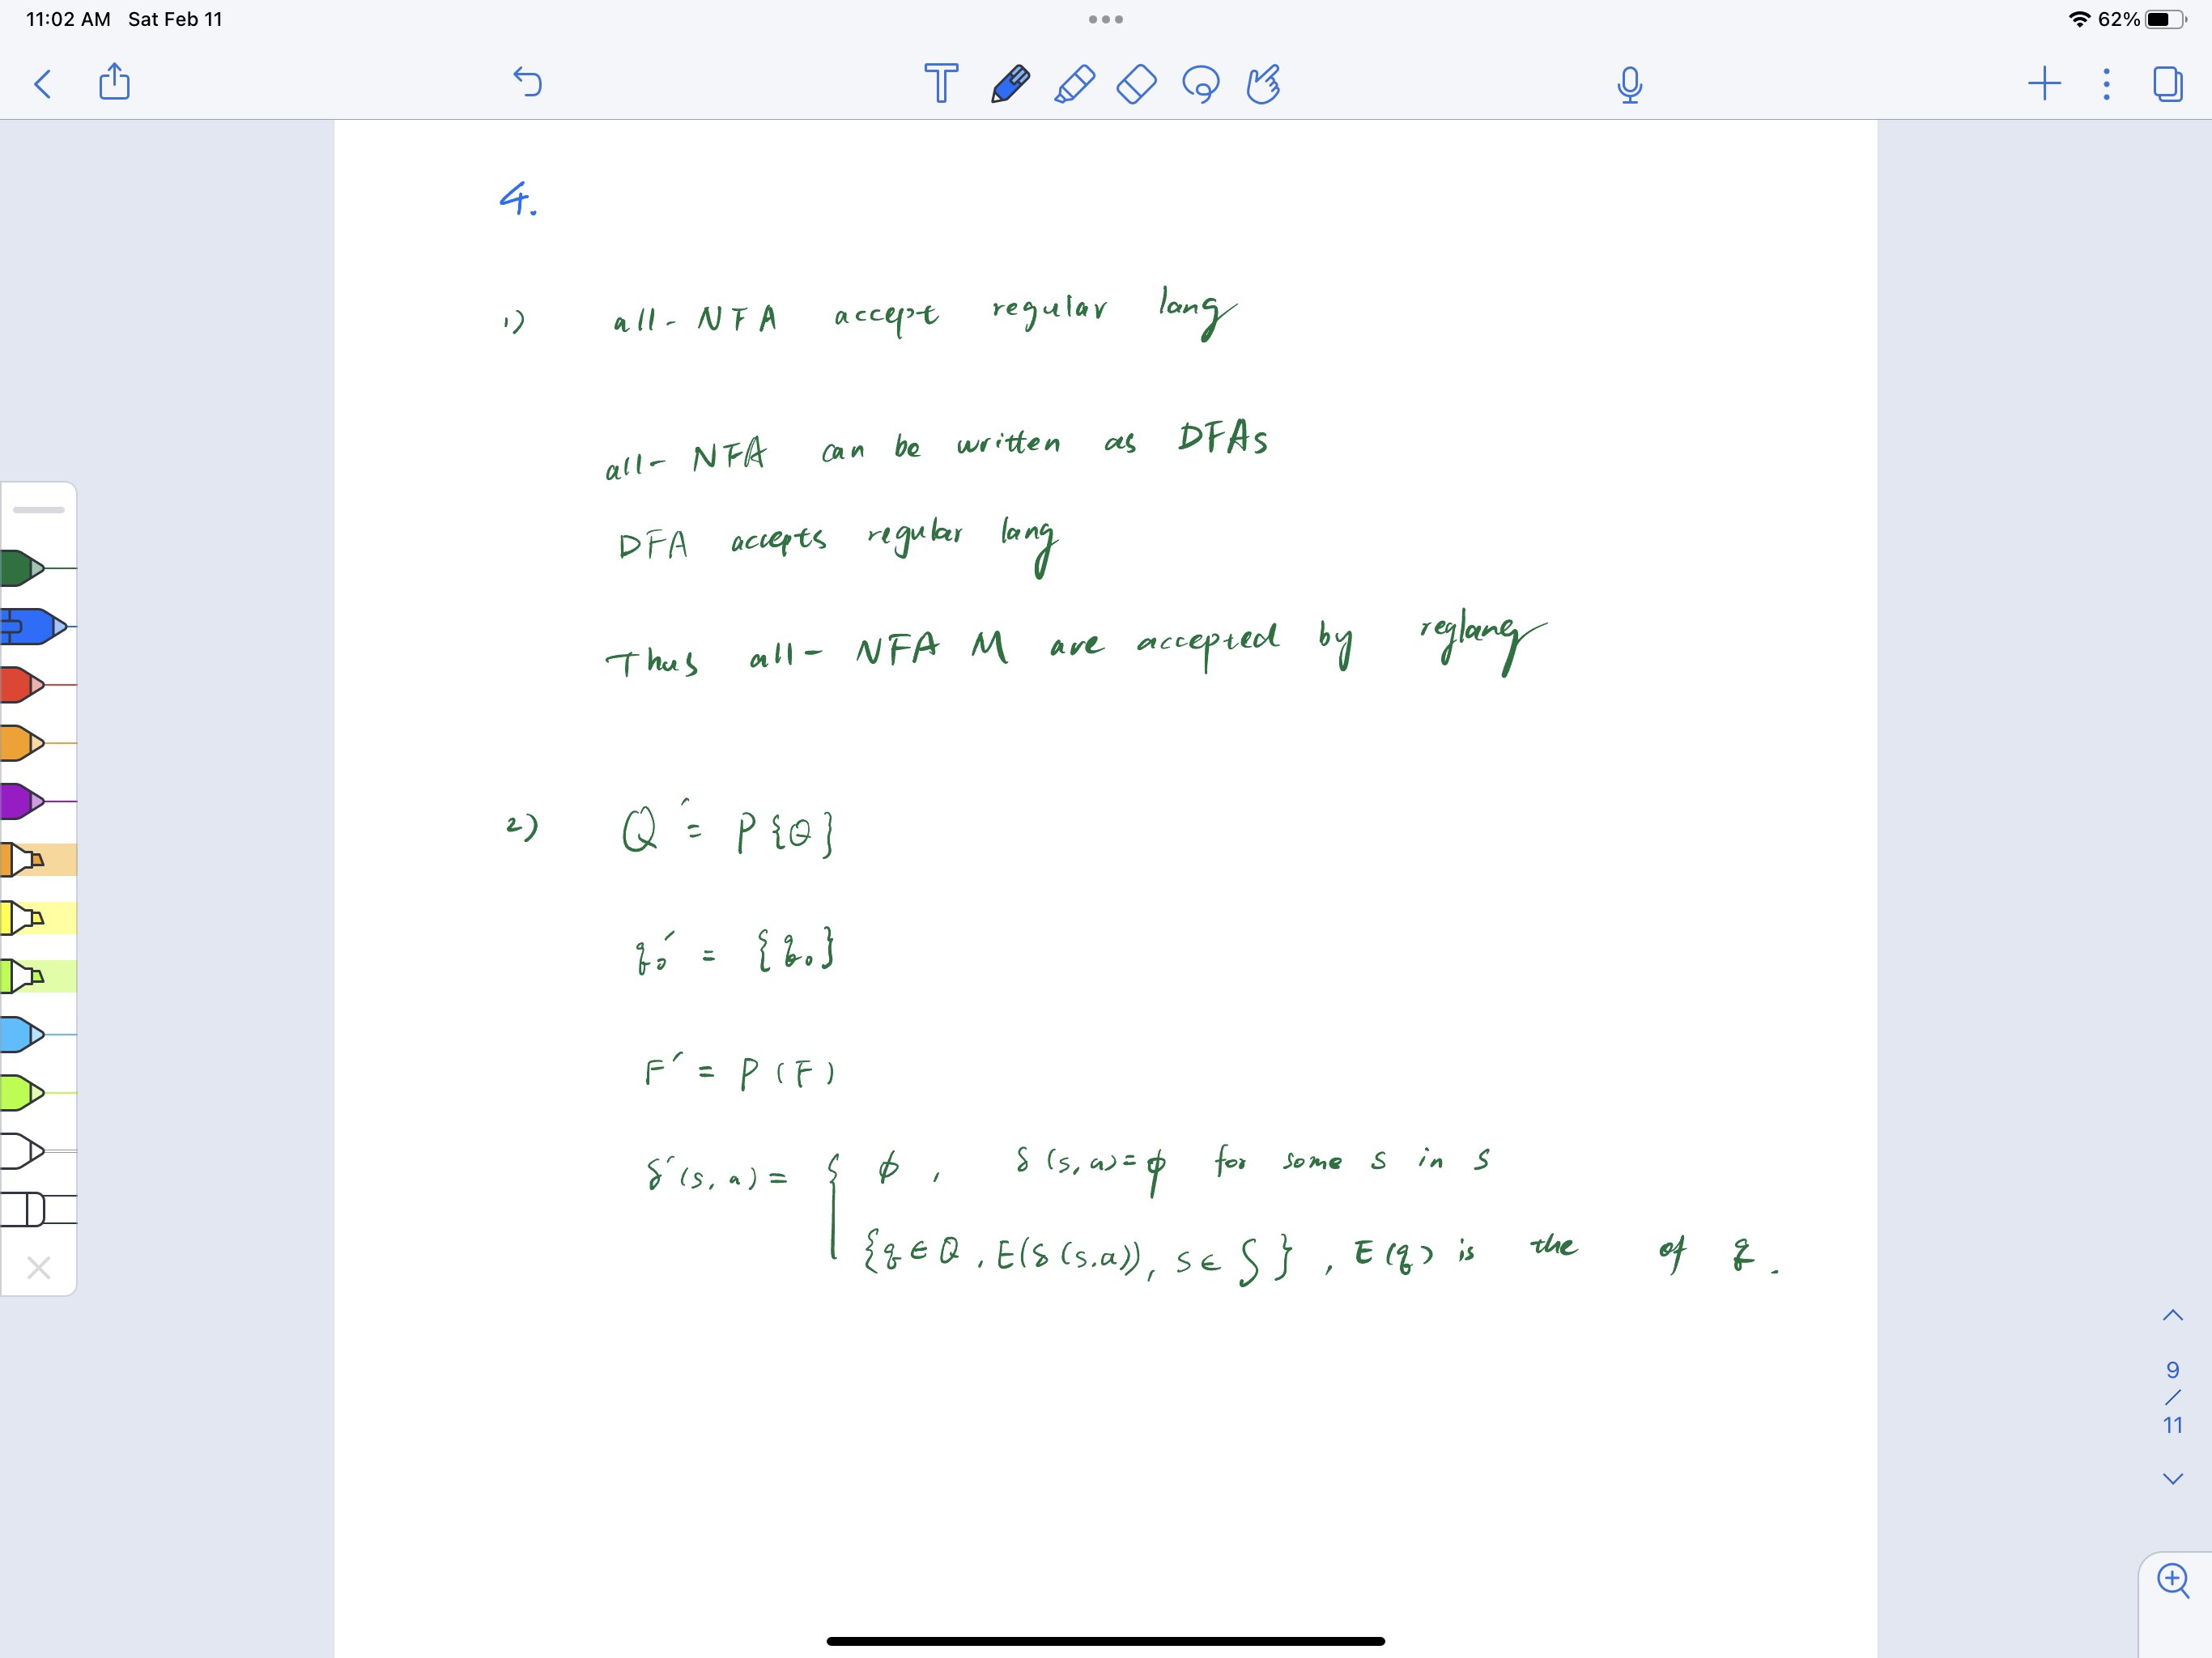 11:02 AM Sat Feb 11
62%
4.
1) all-NFA accept regular lang
all-NFA can be written as DFAs
DFA accepts regular lang
Thus all-NFA M are accepted by reglang
2) Q´= P{Q}
q₀´ = {q₀}
F´ = P(F)
δ´(s, a) = { ϕ , δ(s, a)=ϕ for some s in S
{q ∈ Q , E(δ(s,a)), s ∈ S} , E(q) is the of q.
9
/
11